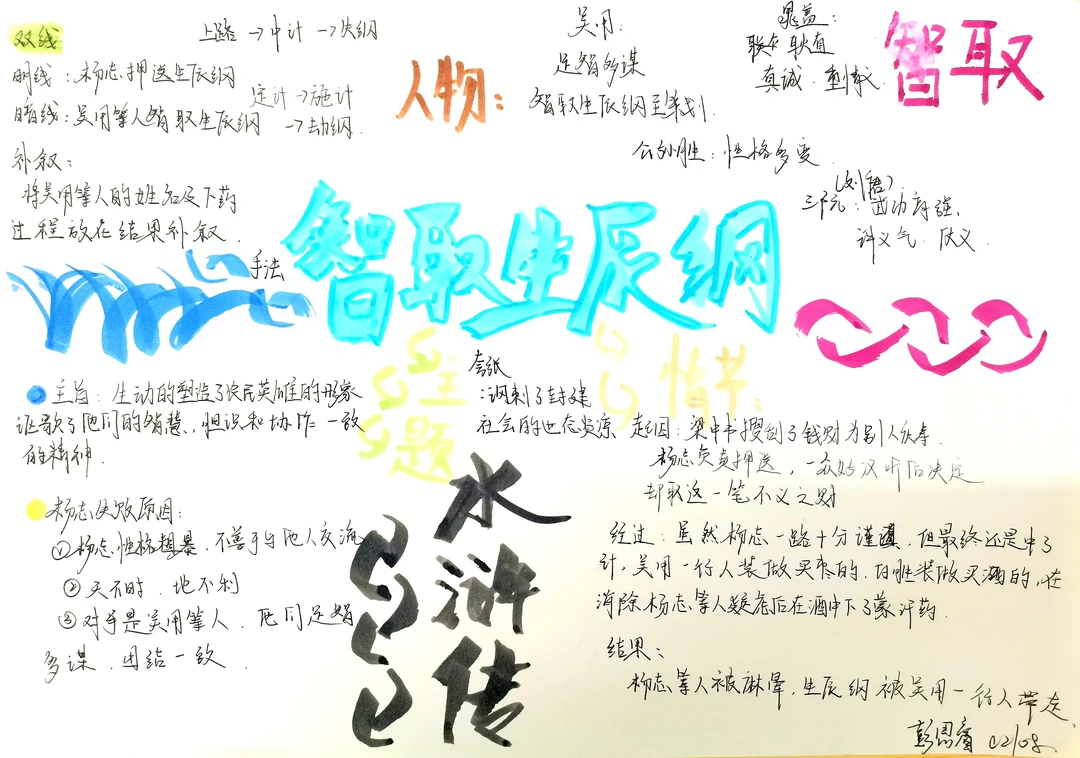 双线
上路→中计→失纲
明线：杨志押送生辰纲
定计→施计
暗线：吴用等人智取生辰纲
→劫纲
补叙：
将吴用等人的姓名及下药
过程放在结果补叙.
手法
人物：
吴用：
足智多谋
智取生辰纲主策划.
晁盖：
联车 耿直
真诚.
智取
公孙胜：性格多变
(刘唐)
三阮：武功高强.
讲义气.
智取生辰纲
主题
讽刺了封建
社会的世态炎凉
主旨：生动的塑造了农民英雄的形象
讴歌了他们的智慧.胆识和协作一致
的精神.
杨志失败原因：
①杨志性格粗暴.不善于与他人交流
②天不时.地不利
③对手是吴用等人.他们足智
多谋.团结一致.
水浒传
情节：
起因：梁中书搜刮了钱财为别人庆寿.
杨志负责押送，一众好汉听后决定
却取这一笔不义之财
经过：虽然杨志一路十分谨慎.但最终还是中了
计，吴用一行人装做买枣的，白胜装做买酒的，在
消除杨志等人疑虑后在酒中下了蒙汗药.
结果：
杨志等人被麻晕，生辰纲被吴用一行人带走.